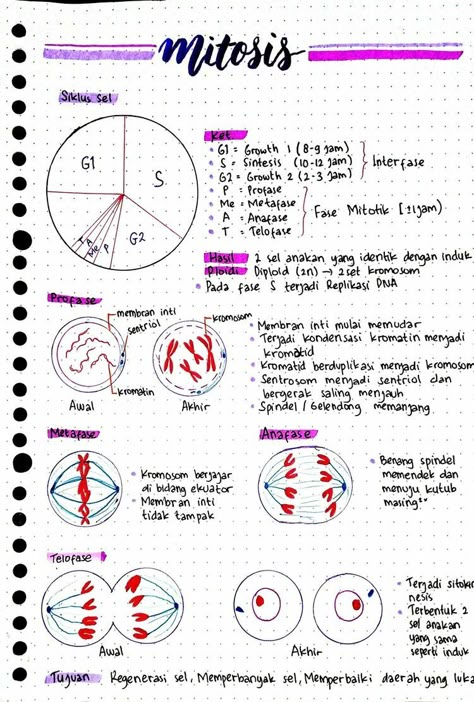 mitosis
Siklus sel
G1
S
G2
T
A
Me
P
Ket.
G1 = Growth 1 (8-9 jam)
S = Sintesis (10-12 jam)
G2 = Growth 2 (2-3 jam)
Interfase
P = Profase
Me = Metafase
A = Anafase
T = Telofase
Fase Mitotik [±1jam)
Hasil 2 sel anakan yang identik dengan induk
Ploidi Diploid (2n) → 2 set kromosom
Pada fase S terjadi Replikasi DNA
Profase
membran inti
sentriol
kromatin
kromosom
Awal
Akhir
Membran inti mulai memudar
Terjadi kondensasi kromatin menjadi
kromatid
Kromatid berduplikasi menjadi kromosom
Sentrosom menjadi sentriol dan
bergerak saling menjauh
Spindel / Gelendong memanjang
Metafase
Kromosom berjajar
di bidang ekuator
Membran inti
tidak tampak
Anafase
Benang spindel
memendek dan
menuju kutub
masing²
Telofase
Awal
Akhir
Terjadi sitoki
nesis
Terbentuk 2
sel anakan
yang sama
seperti induk
Tujuan Regenerasi sel, Memperbanyak sel, Memperbaiki daerah yang luka